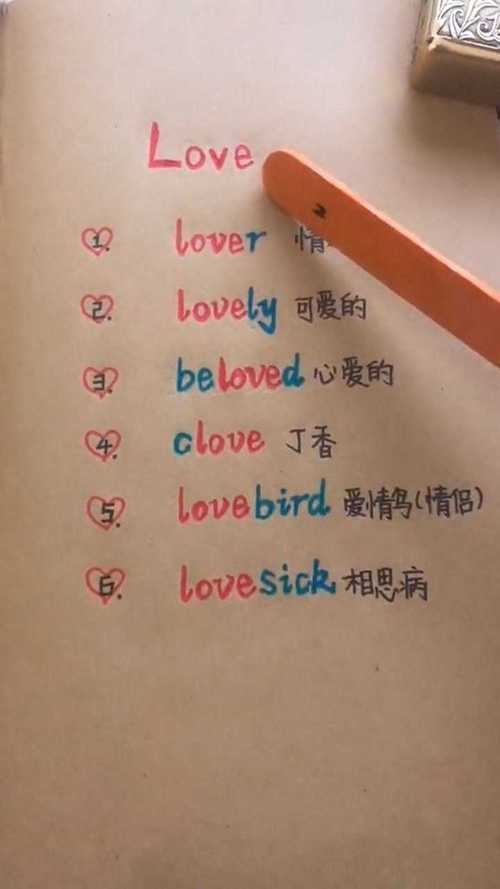 Love
1. lover 情
2. lovely 可爱的
3. beloved 心爱的
4. clove 丁香
5. lovebird 爱情鸟(情侣)
6. lovesick 相思病